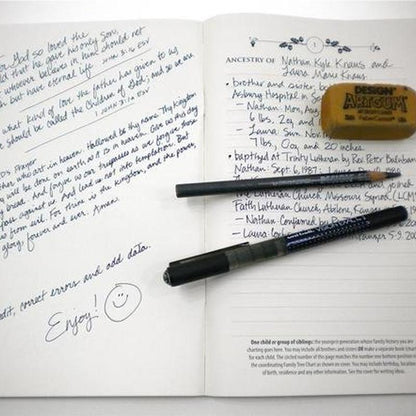 For God so loved the
world that he gave his only Son,
whoever believes in him should not
but have eternal life. John 3:16 ESV
what kind of love the father has given to us
should be called the children of God; and so we are
1 John 3:1a ESV
Prayer
who art in heaven. Hallowed be thy name. Thy Kingdom
will be done on earth as it is in heaven. Give us this day
bread. And forgive us our trespasses as we forgive those
against us. And lead us not into temptation. But
from evil. For thine is the kingdom, and the power,
glory, forever and ever. Amen.
edit, correct errors and add data.
Enjoy!
1
ANCESTRY OF Nathan Kyle Kraus and
Laura Marie Kraus
• brother and sister, b
Asbury Hospital
- Nathan: Mon, Aug
6 lbs, 2oz, and
- Laura: Sun, Nov
7 lbs, 0 oz, and 20 inches.
• baptized at Trinity Lutheran by Rev. Peter
Nathan: Sept. 6, 1987
The Lutheran Church Missouri Synod (LCMS)
Faith Lutheran Church, Abilene, Kansas
- Nathan: Confirmed
- Laura: 5-3-200
DESIGN
ARTGUM
FaberCastell
One child or group of siblings: the youngest generation whose family history you are
charting goes here. You may include all brothers and sisters OR make a separate book/chart
for each child. The circled number of this page matches the number one bottom position
the coordinating Family Tree Chart as shown on cover. You may include birthday, location
of birth, residence and any other information. See the cover for writing ideas.